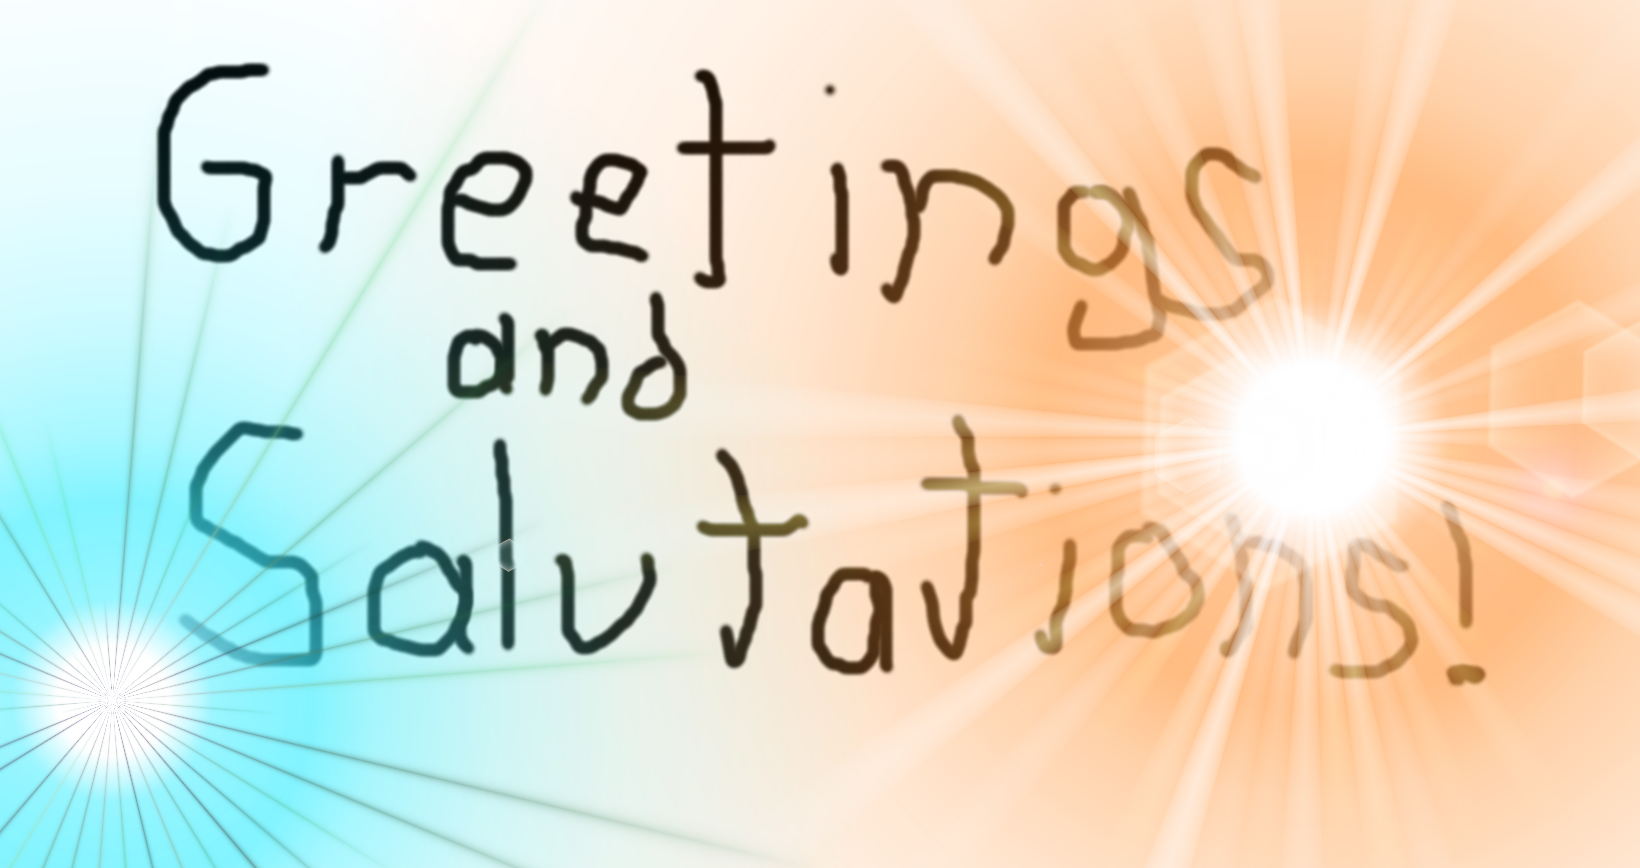 Greetings
and
Salutations!